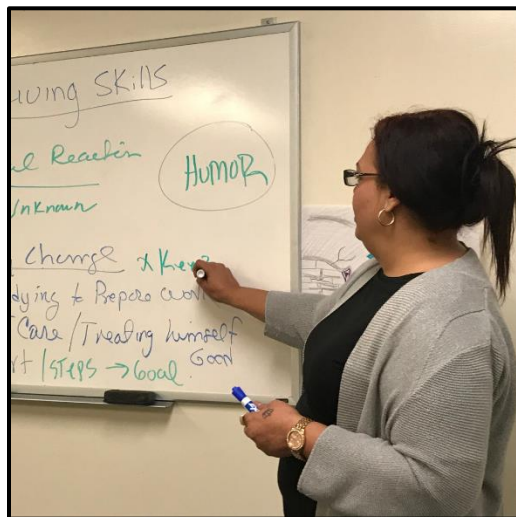 uving SKills
al Reaction
HUMOR
Unknown
Change
dying to Prepare work
Care / Treating himself
Good
rt / STEPS → Goal